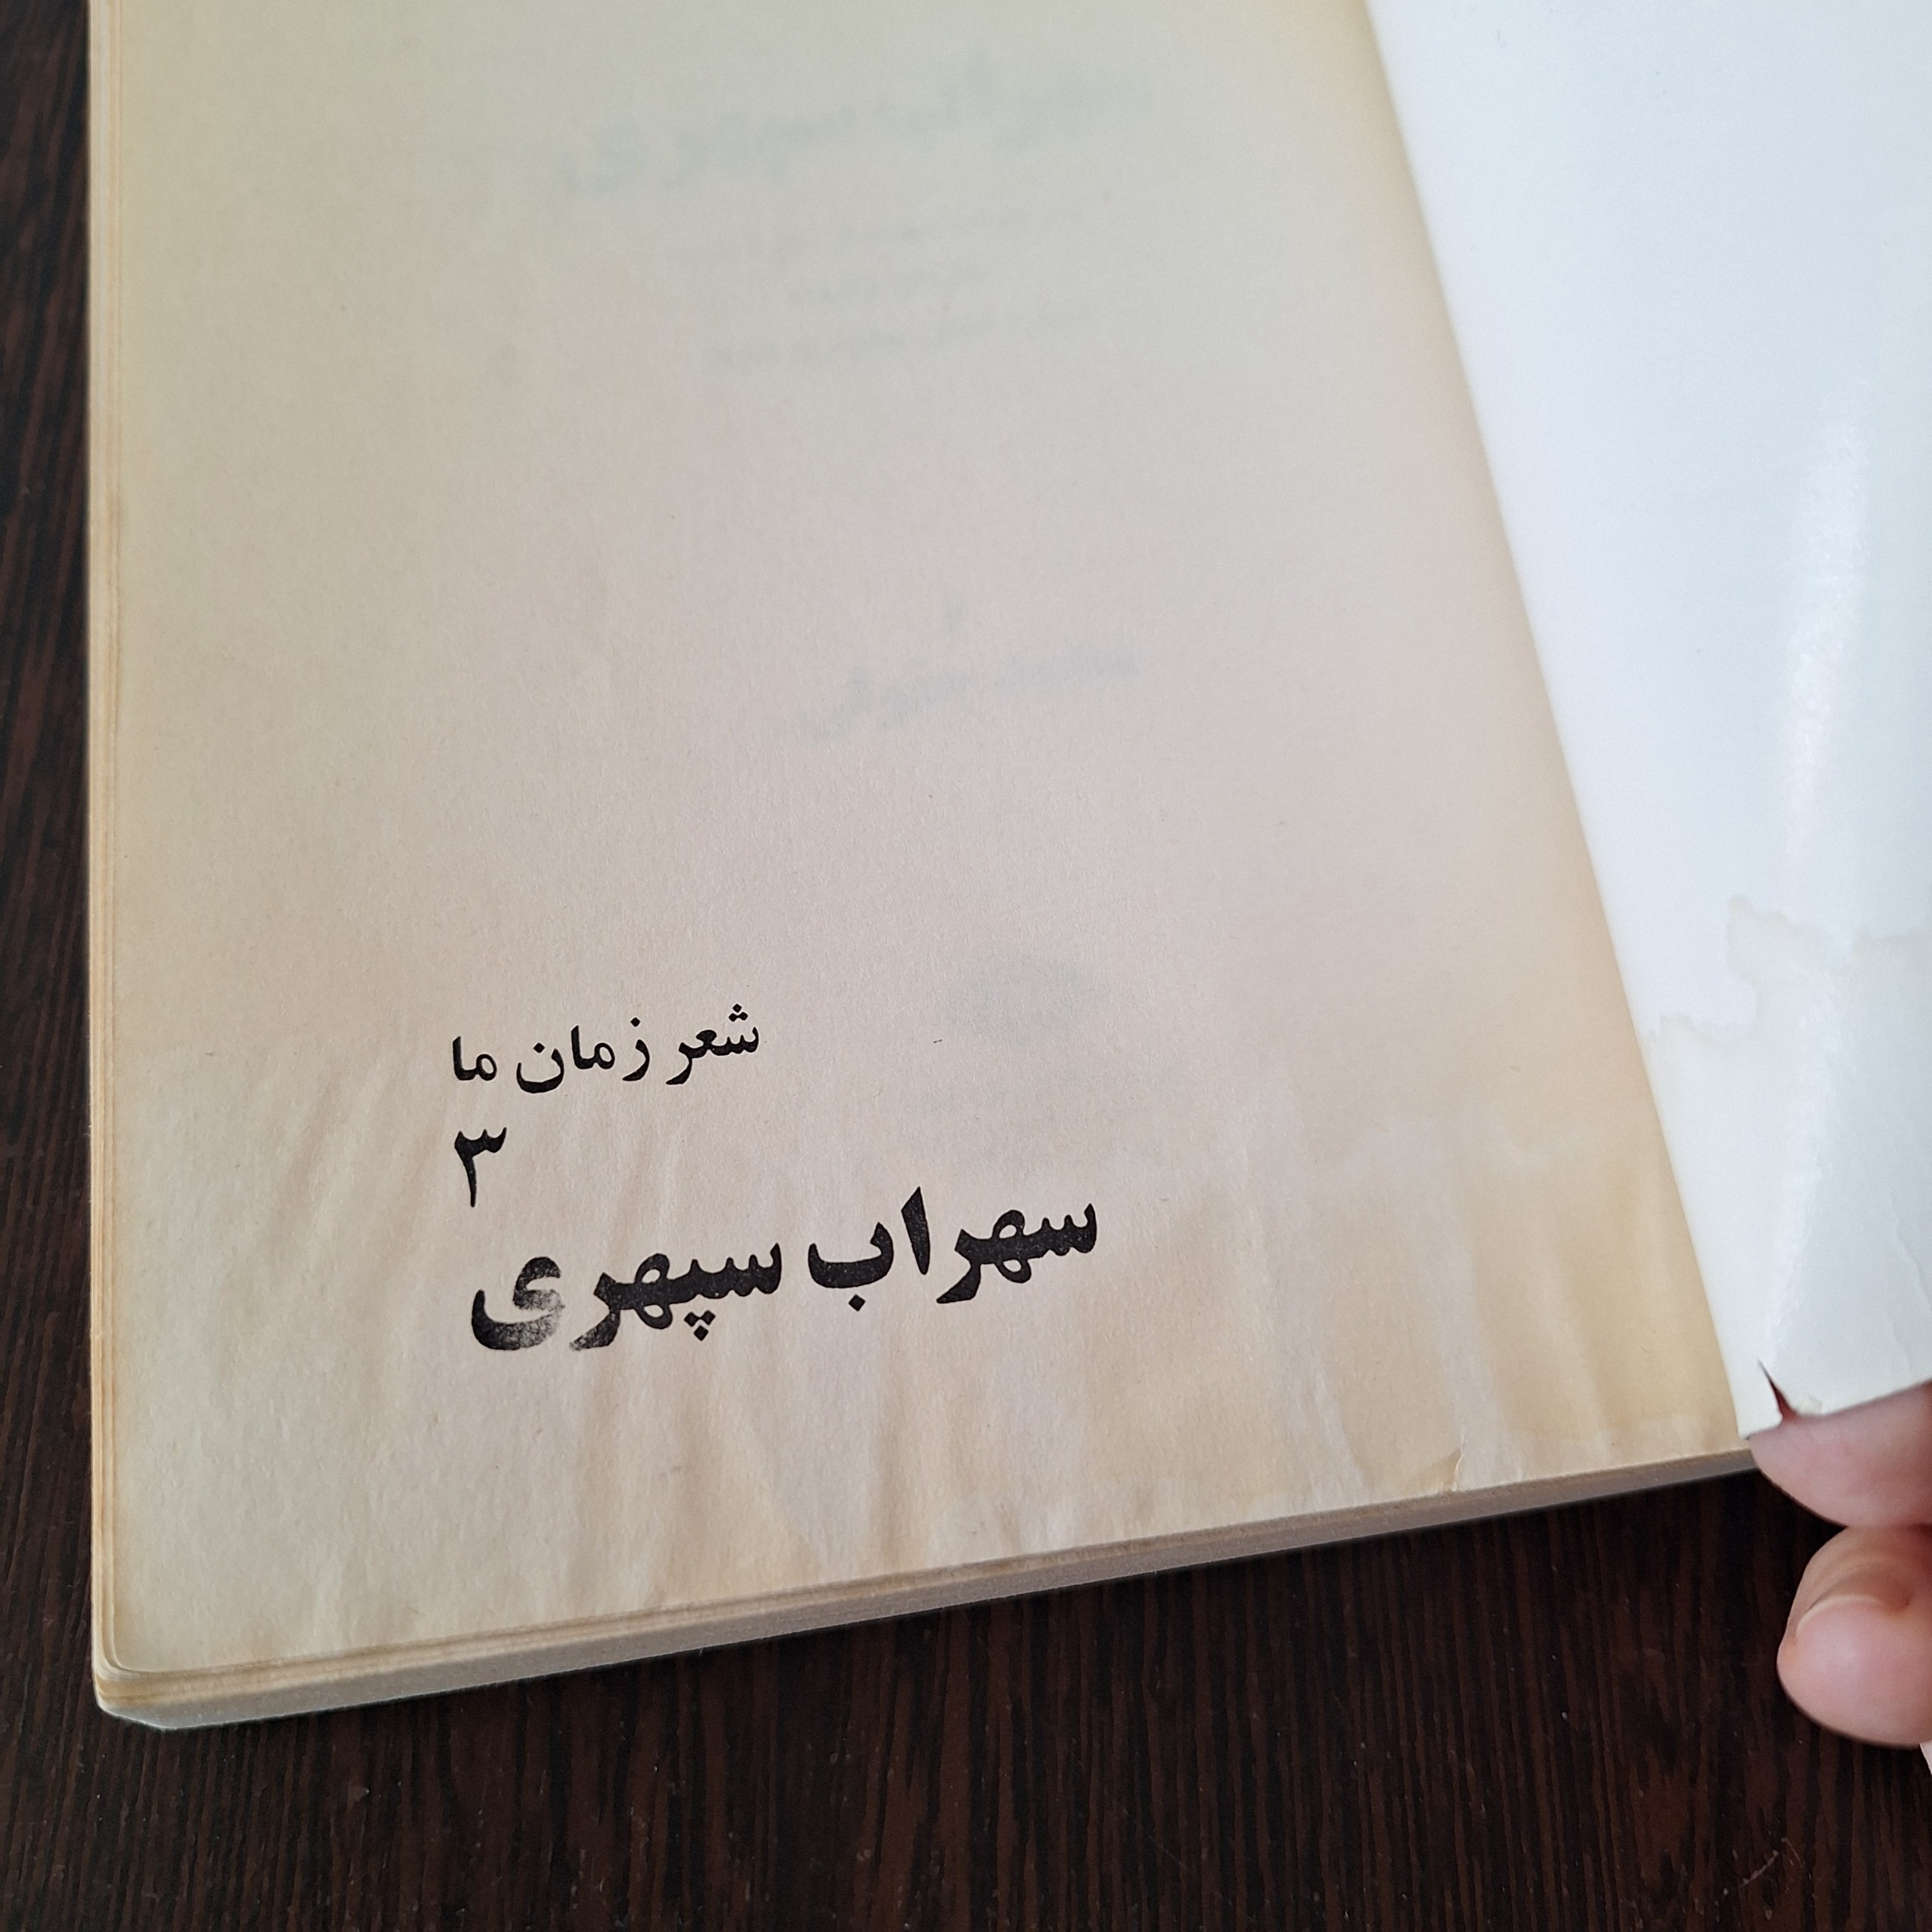 شعر زمان ما
۳
سهراب سپهری